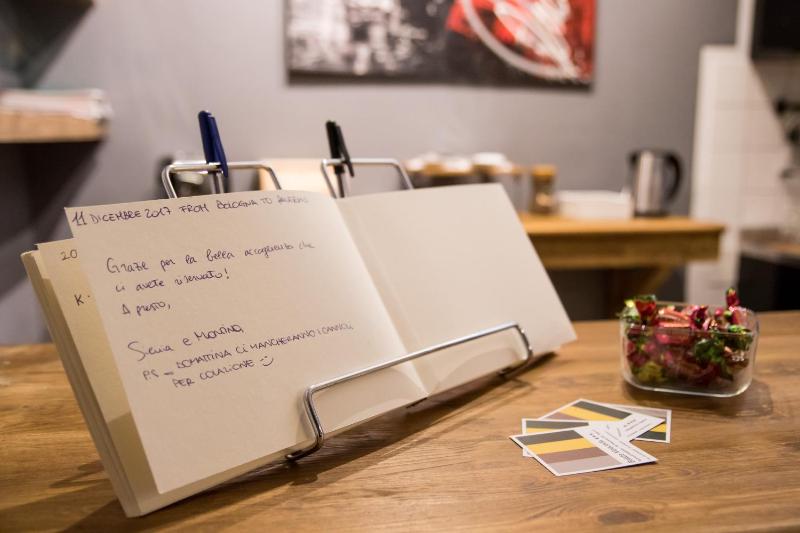 11 DICEMBRE 2017 FROM BOLOGNA TO
Grazie per la bella accoglienza che
ci avete riservato!
A presto,
e Martino
P.S - DOMATTINA CI MANCHERANNO I CANNOLI
PER COLAZIONE
20
K.